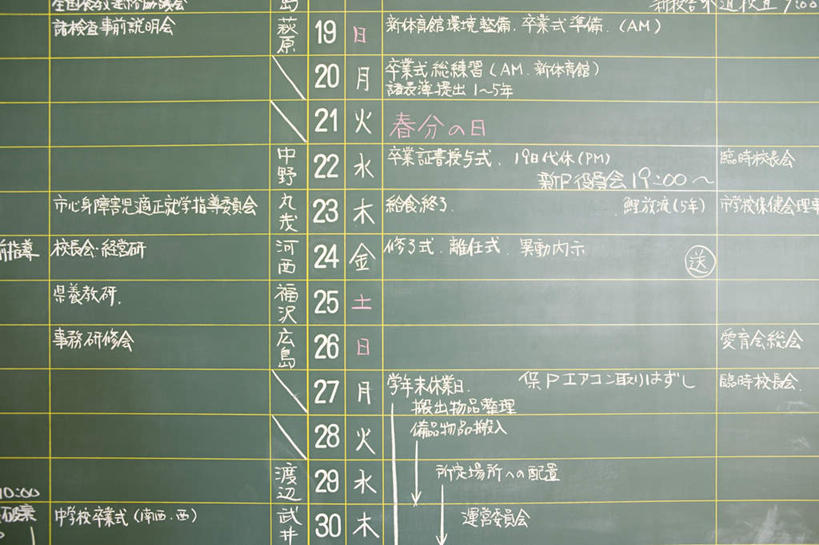 諸検査事前説明会 萩原 19 日 新体育館環境整備．卒業式準備．(AM)
20 月 卒業式総練習(AM．新体育館)
諸表簿提出 1～5年
21 火 春分の日
中野 22 水 卒業証書授与式．19日代休(PM) 臨時校長会
新P役員会 19:00～
市心身障害児適正就学指導委員会 丸茂 23 木 給食終了 鯉放流(5年) 市学校保健会理事
指導 校長会・経営研 河西 24 金 修了式．離任式．異動内示 送
県養教研． 福沢 25 土
事務研修会 広島 26 日 愛育会総会
27 月 学年末休業日． 保Pエアコン取りはずし 臨時校長会．
搬出物品整理
28 火 備品物品搬入
渡辺 29 水 所定場所への配置
10:00
中学校卒業式(南西．西) 武井 30 木 運営委員会